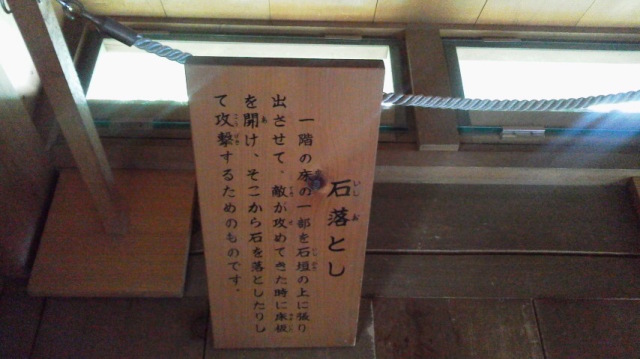 石落とし
いしお
一階の床の一部を石垣の上に張り
出させて、敵が攻めてきた時に床板
を開け、そこから石を落としたりし
て攻撃するためのものです。